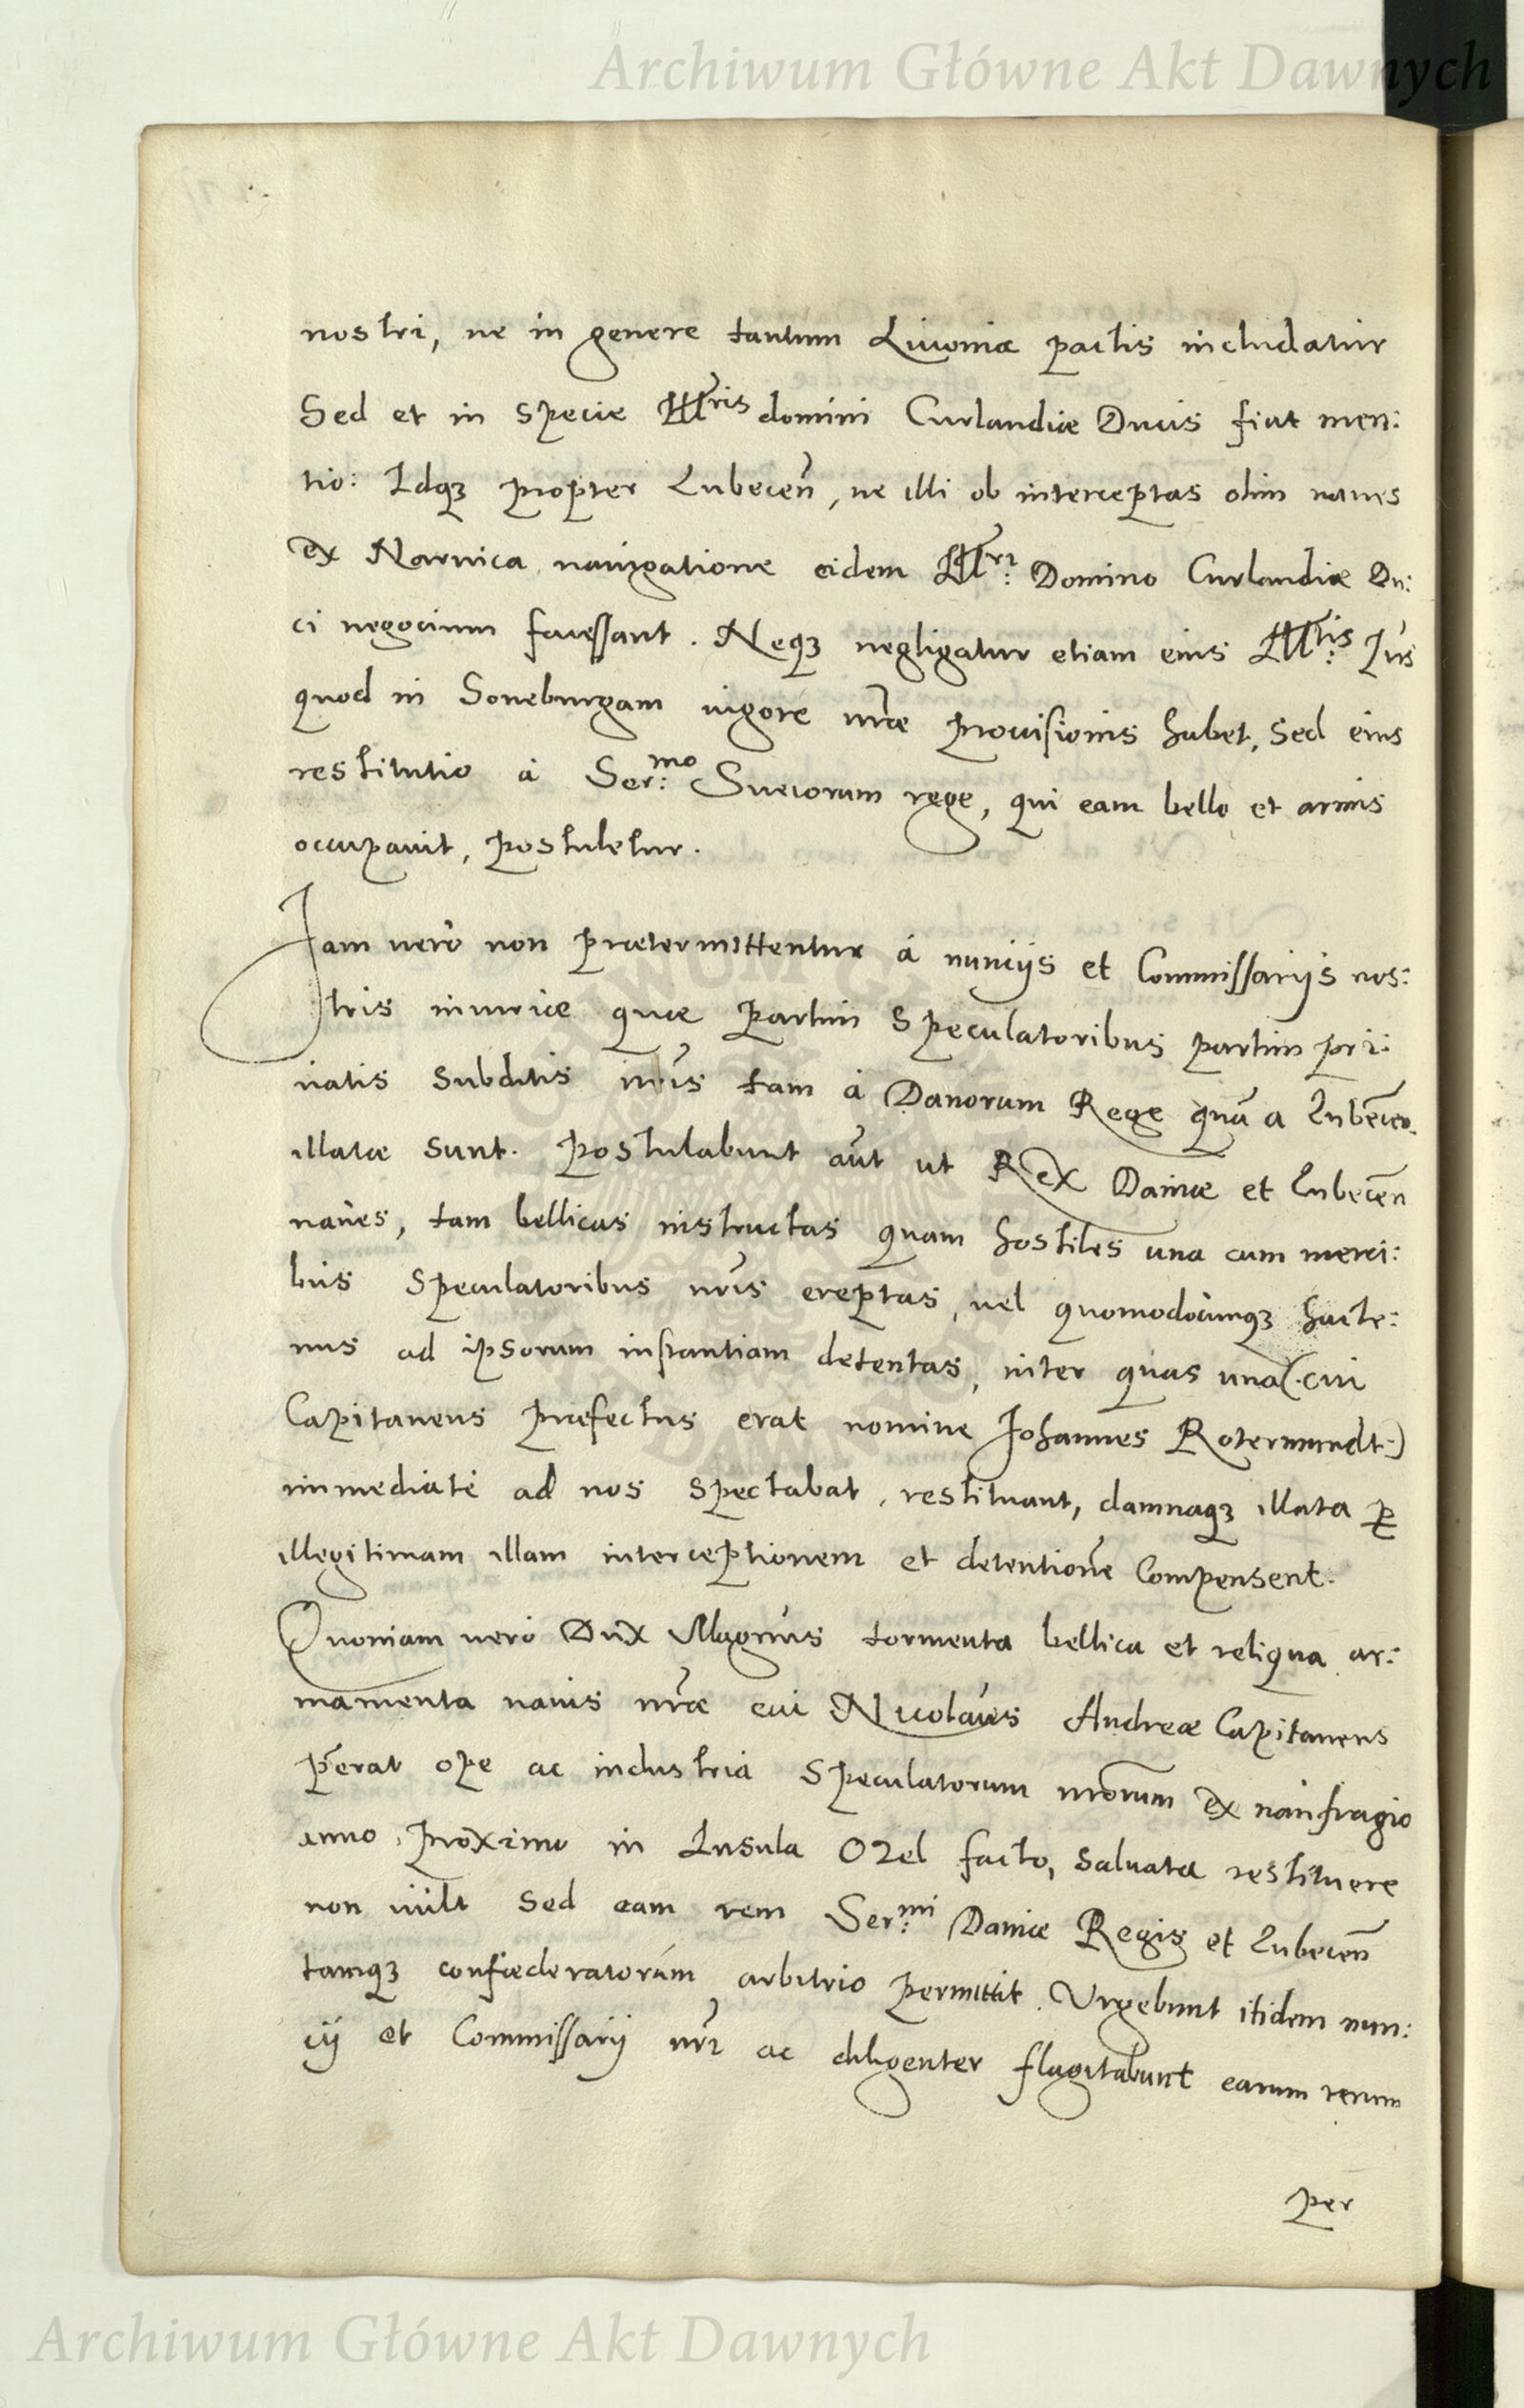 Archiwum Główne Akt Dawnych
nostri, ne in genere tantum Liuoniæ pactis includatur
Sed et in specie Illris domini Curlandiæ Ducis fiat men:
tio: Idqз propter Lubecen̄, ne illi ob interceptas olim naues
ex Naruica nauigatione eidem Illri: Domino Curlandiæ Du:
ci negocium facessant. Neqз negligatur etiam eius Illtis: Jus
quod in Soneburgam uigore nr̄æ prouisionis habet, Sed eius
restitutio à Ser:mo Sueiorum rege, qui eam bello et armis
occupauit, postuletur.
Jam uerò non prætermittentur à nuncijs et Commissarijs nos:
tris iniuriæ quæ partim Speculatoribus partim pri:
uatis subditis nr̄is tam à Danorum Rege quā a Lubecen.
illatæ sunt. Postulabunt aūt ut Rex Daniæ et Lubecen̄
naues, tam bellicas instructas quam hostiles una cum merci:
bus Speculatoribus nr̄is ereptas, uel quomodocunqз hacte:
nus ad ipsorum instantiam detentas, inter quas una (.cui
Capitaneus præfectus erat nomine Johannes Rotermundt.)
immediatè ad nos spectabat, restituant, damnaqз illata ꝑ
illegitimam illam interceptionem et detentionē compensent.
Quoniam uerò Dux Magnus tormenta bellica et reliqua ar:
mamenta nauis nr̄æ cui Nicolaus Andreæ Capitaneus
p̄erat ope ac industria Speculatorum nr̄orum ex naufragio
anno proximo in Insula Ozel facto, saluata restituere
non uult sed eam rem Ser:mi Daniæ Regis et Lubecen̄
tanqз confæderatorum arbitrio permittit. Vrgebunt itidem nun:
cij et Commissarij nr̄i ac diligenter flagitabunt earum rerum
per
Archiwum Główne Akt Dawnych